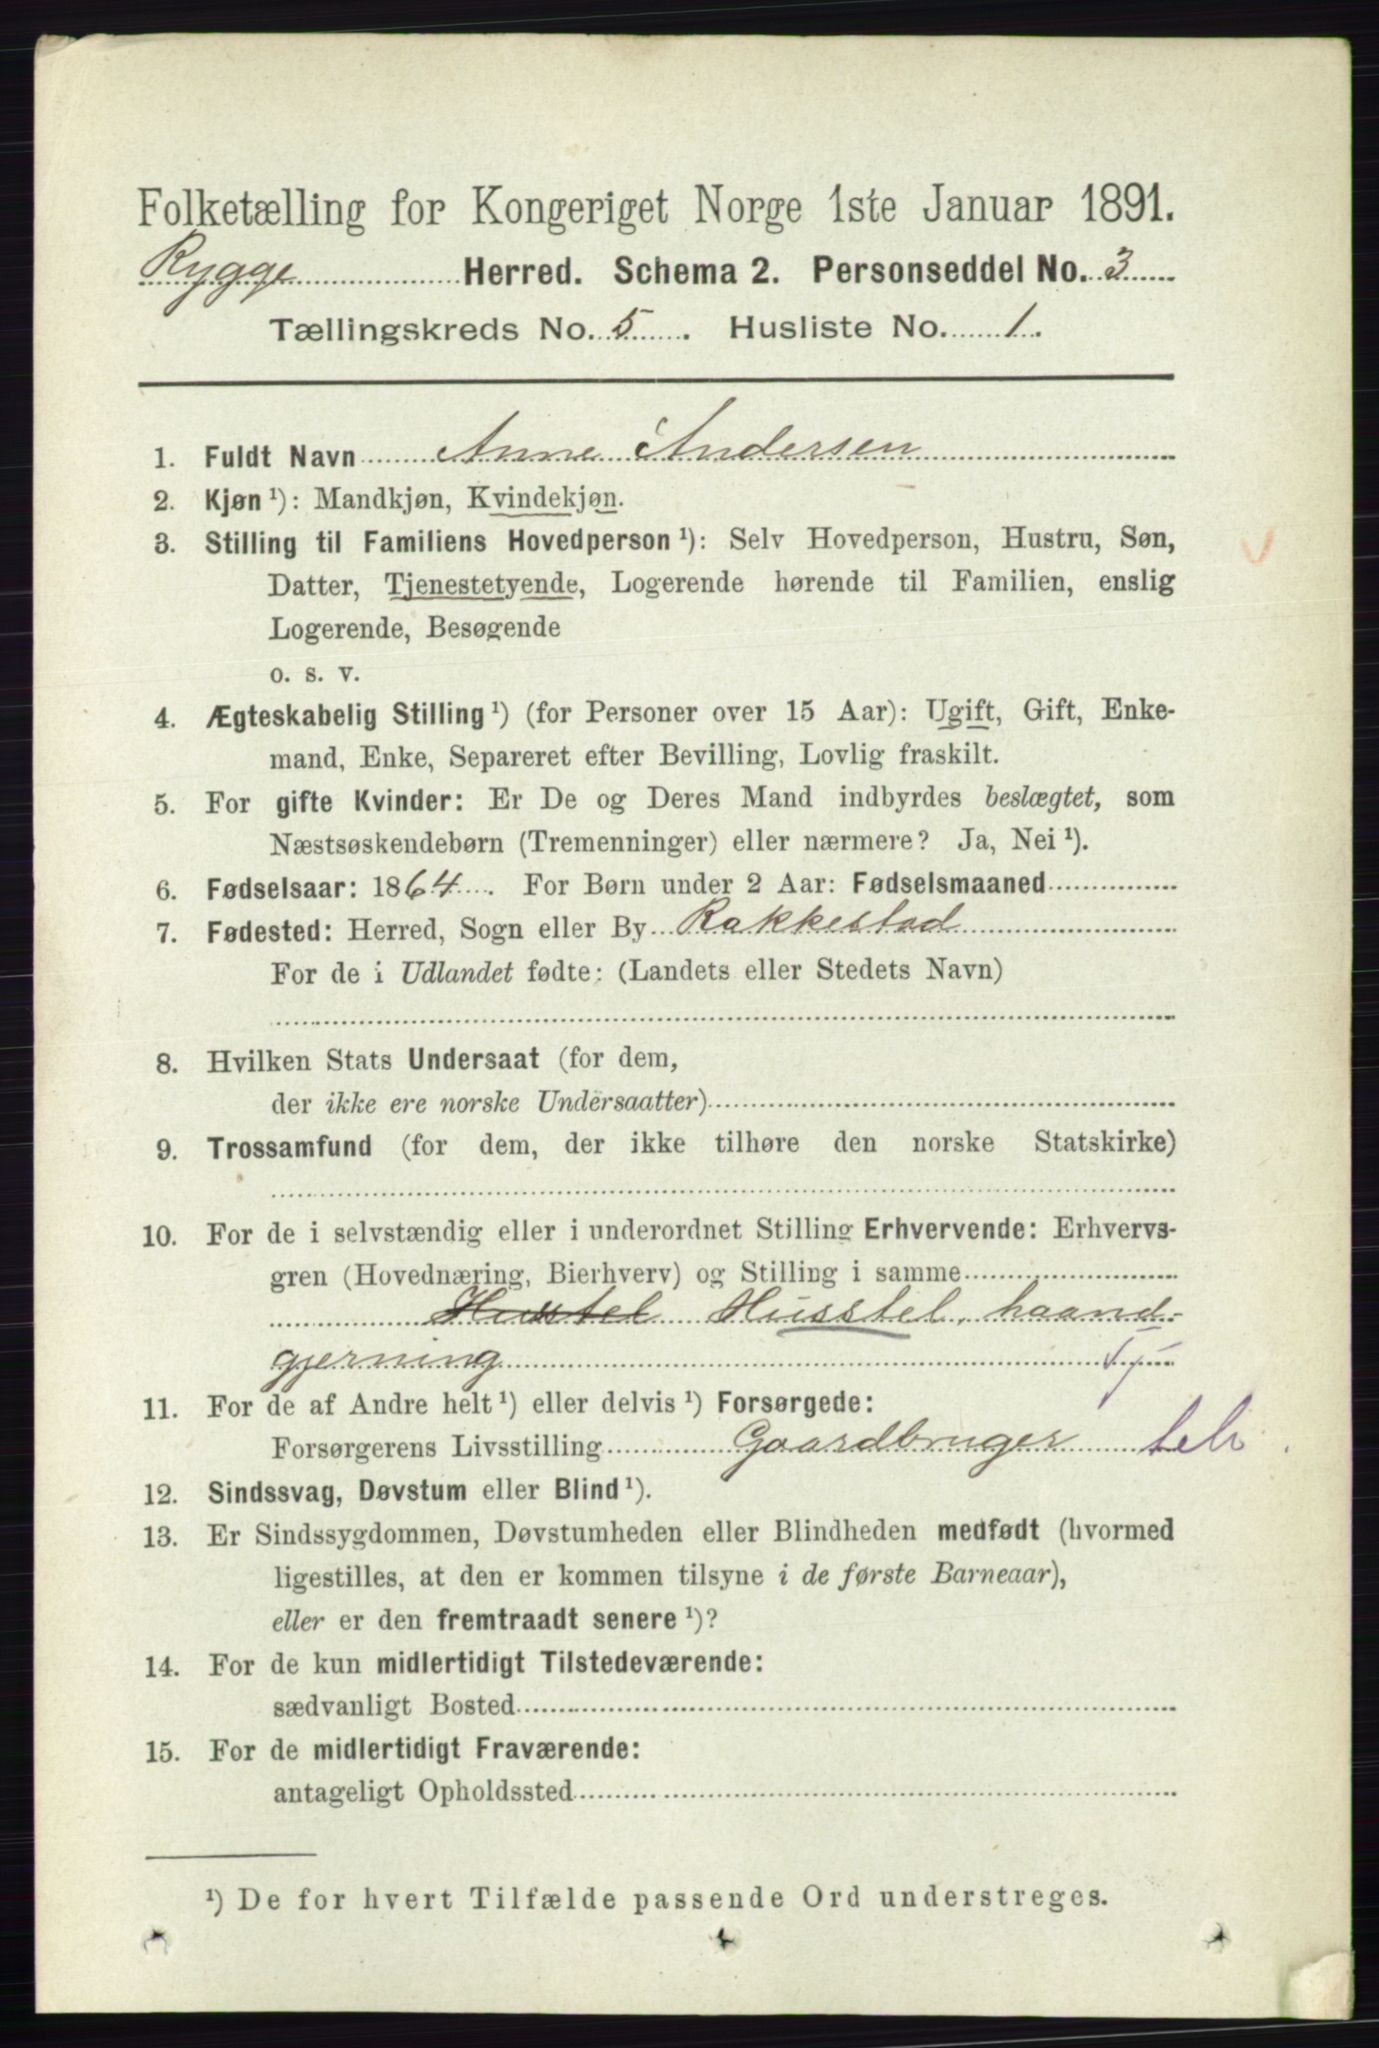 Folketælling for Kongeriget Norge 1ste Januar 1891.
Rygge Herred. Schema 2. Personseddel No. 3
Tællingskreds No. 5. Husliste No. 1.
1. Fuldt Navn Anne Andersen
2. Kjøn ¹): Mandkjøn, Kvindekjøn.
3. Stilling til Familiens Hovedperson ¹): Selv Hovedperson, Hustru, Søn,
Datter, Tjenestetyende, Logerende hørende til Familien, enslig
Logerende, Besøgende
o. s. v.
4. Ægteskabelig Stilling ¹) (for Personer over 15 Aar): Ugift, Gift, Enke-
mand, Enke, Separeret efter Bevilling, Lovlig fraskilt.
5. For gifte Kvinder: Er De og Deres Mand indbyrdes beslægtet, som
Næstsøskendebørn (Tremenninger) eller nærmere? Ja, Nei ¹).
6. Fødselsaar: 1864. For Børn under 2 Aar: Fødselsmaaned
7. Fødested: Herred, Sogn eller By Rakkestad
For de i Udlandet fødte: (Landets eller Stedets Navn)
8. Hvilken Stats Undersaat (for dem,
der ikke ere norske Undersaatter)
9. Trossamfund (for dem, der ikke tilhøre den norske Statskirke)
10. For de i selvstændig eller i underordnet Stilling Erhvervende: Erhvervs-
gren (Hovednæring, Bierhverv) og Stilling i samme
Hustel Husstel, haand-
gjerning
11. For de af Andre helt ¹) eller delvis ¹) Forsørgede:
Forsørgerens Livsstilling Gaardbruger
12. Sindssvag, Døvstum eller Blind ¹).
13. Er Sindssygdommen, Døvstumheden eller Blindheden medfødt (hvormed
ligestilles, at den er kommen tilsyne i de første Barneaar),
eller er den fremtraadt senere ¹)?
14. For de kun midlertidigt Tilstedeværende:
sædvanligt Bosted
15. For de midlertidigt Fraværende:
antageligt Opholdssted
¹) De for hvert Tilfælde passende Ord understreges.